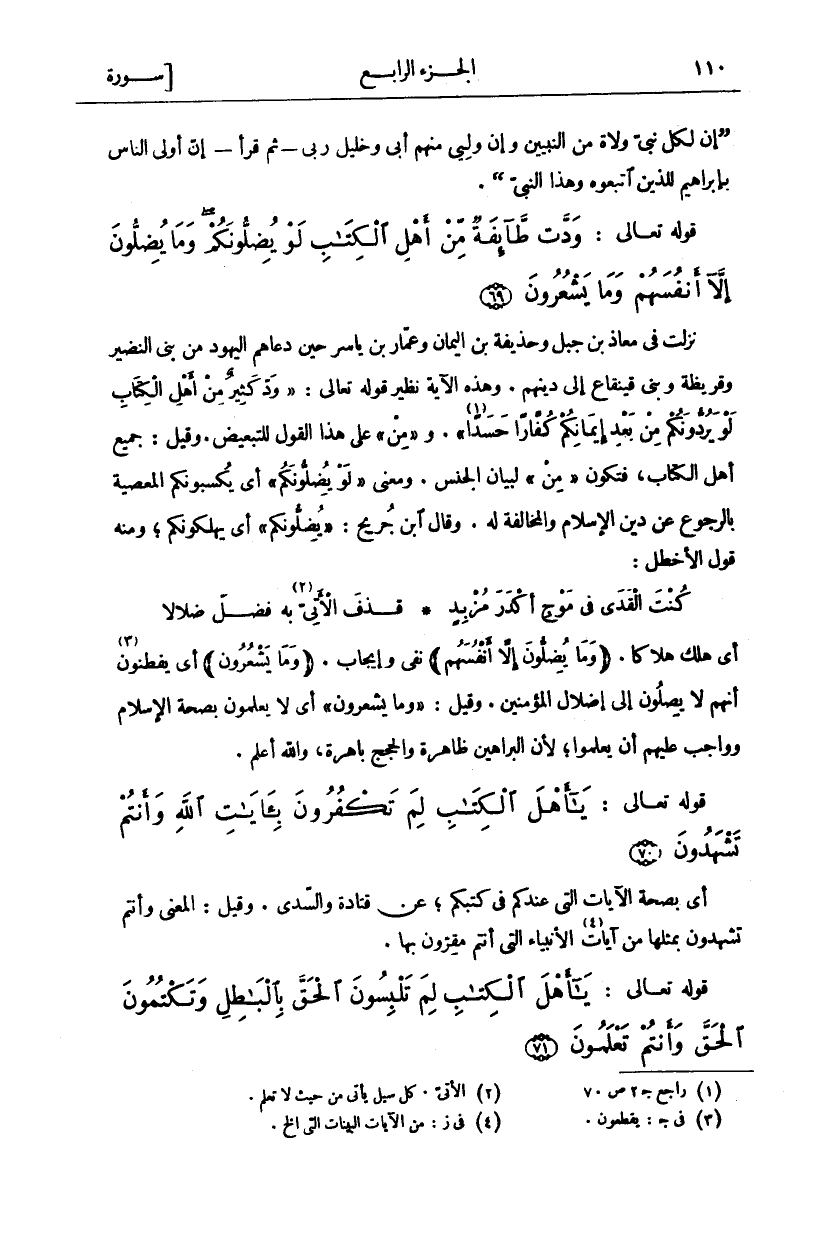 ١١٠ الجـزء الرابـع [سـورة
”إن لكل نبىّ ولاة من النبيين وإن وليى منهم أبى وخليل ربى — ثم قرأ — إنّ أولى الناس
بإبراهيم للذين ٱتبعوه وهذا النبىّ“ .
قوله تعـالى : وَدَّت طَّآئِفَةٌ مِّنْ أَهْلِ ٱلْكِتَٰبِ لَوْ يُضِلُّونَكُمْ ۖ وَمَا يُضِلُّونَ
إِلَّآ أَنفُسَهُمْ وَمَا يَشْعُرُونَ ﴿٦٩﴾
نزلت فى معاذ بن جبل وحذيفة بن اليمان وعمّار بن ياسر حين دعاهم اليهود من بنى النضير
وقريظة وبنى قينقاع إلى دينهم . وهذه الآية نظير قوله تعالى : « وَدَّ كَثِيرٌ مِنْ أَهْلِ الْكِتَابِ
لَوْ يَرُدُّونَكُمْ مِنْ بَعْدِ إِيمَانِكُمْ كُفَّارًا حَسَدًا(١)» . و «مِنْ» على هذا القول للتبعيض . وقيل : جميع
أهل الكتاب، فتكون « مِنْ » لبيان الجنس . ومعنى « لَوْ يُضِلُّونَكُمْ» أى يُكسبونكم المعصية
بالرجوع عن دين الإسلام والمخالفة له . وقال ٱبن جُريح : «يُضِلُّونكم» أى يهلكونكم ؛ ومنه
قول الأخطل :
كُنْتَ الْقَذَى فى مَوْجِ أَكْدَرَ مُزْبِدٍ * قـذفَ الْأَتِىّ(٢) به فضـلّ ضلالا
أى هلك هلاكا . ﴿وَمَا يُضِلُّونَ إِلَّا أَنْفُسَهُم﴾ نفى وإيجاب . ﴿وَمَا يَشْعُرُون﴾ أى يفطنون(٣)
أنهم لا يصِلُون إلى إضلال المؤمنين . وقيل : «وما يشعرون» أى لا يعلمون بصحة الإسلام
وواجب عليهم أن يعلموا؛ لأن البراهين ظاهرة والحجج باهرة، والله أعلم .
قوله تعـالى : يَٰٓأَهْلَ ٱلْكِتَٰبِ لِمَ تَكْفُرُونَ بِـَٔايَٰتِ ٱللَّهِ وَأَنتُمْ
تَشْهَدُونَ ﴿٧٠﴾
أى بصحة الآيات التى عندكم فى كتبكم ؛ عن قتادة والسّدى . وقيل : المعنى وأنتم
تشهدون بمثلها من آيات(٤) الأنبياء التى أنتم مقرّون بها .
قوله تعـالى : يَٰٓأَهْلَ ٱلْكِتَٰبِ لِمَ تَلْبِسُونَ ٱلْحَقَّ بِٱلْبَٰطِلِ وَتَكْتُمُونَ
ٱلْحَقَّ وَأَنتُمْ تَعْلَمُونَ ﴿٧١﴾
(١) راجع جـ٢ ص ٧٠ (٢) الأتىّ . كل سيل يأتى من حيث لا تعلم .
(٣) فى جـ : يقطعون . (٤) فى ز : من الآيات البينات التى الخ .